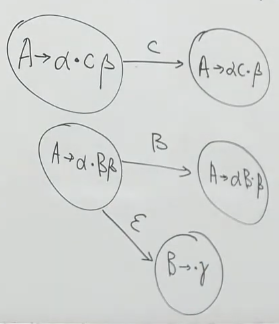 C
A→α·Cβ
A→αC·β
B
A→α·Bβ
A→αB·β
ε
B→·γ